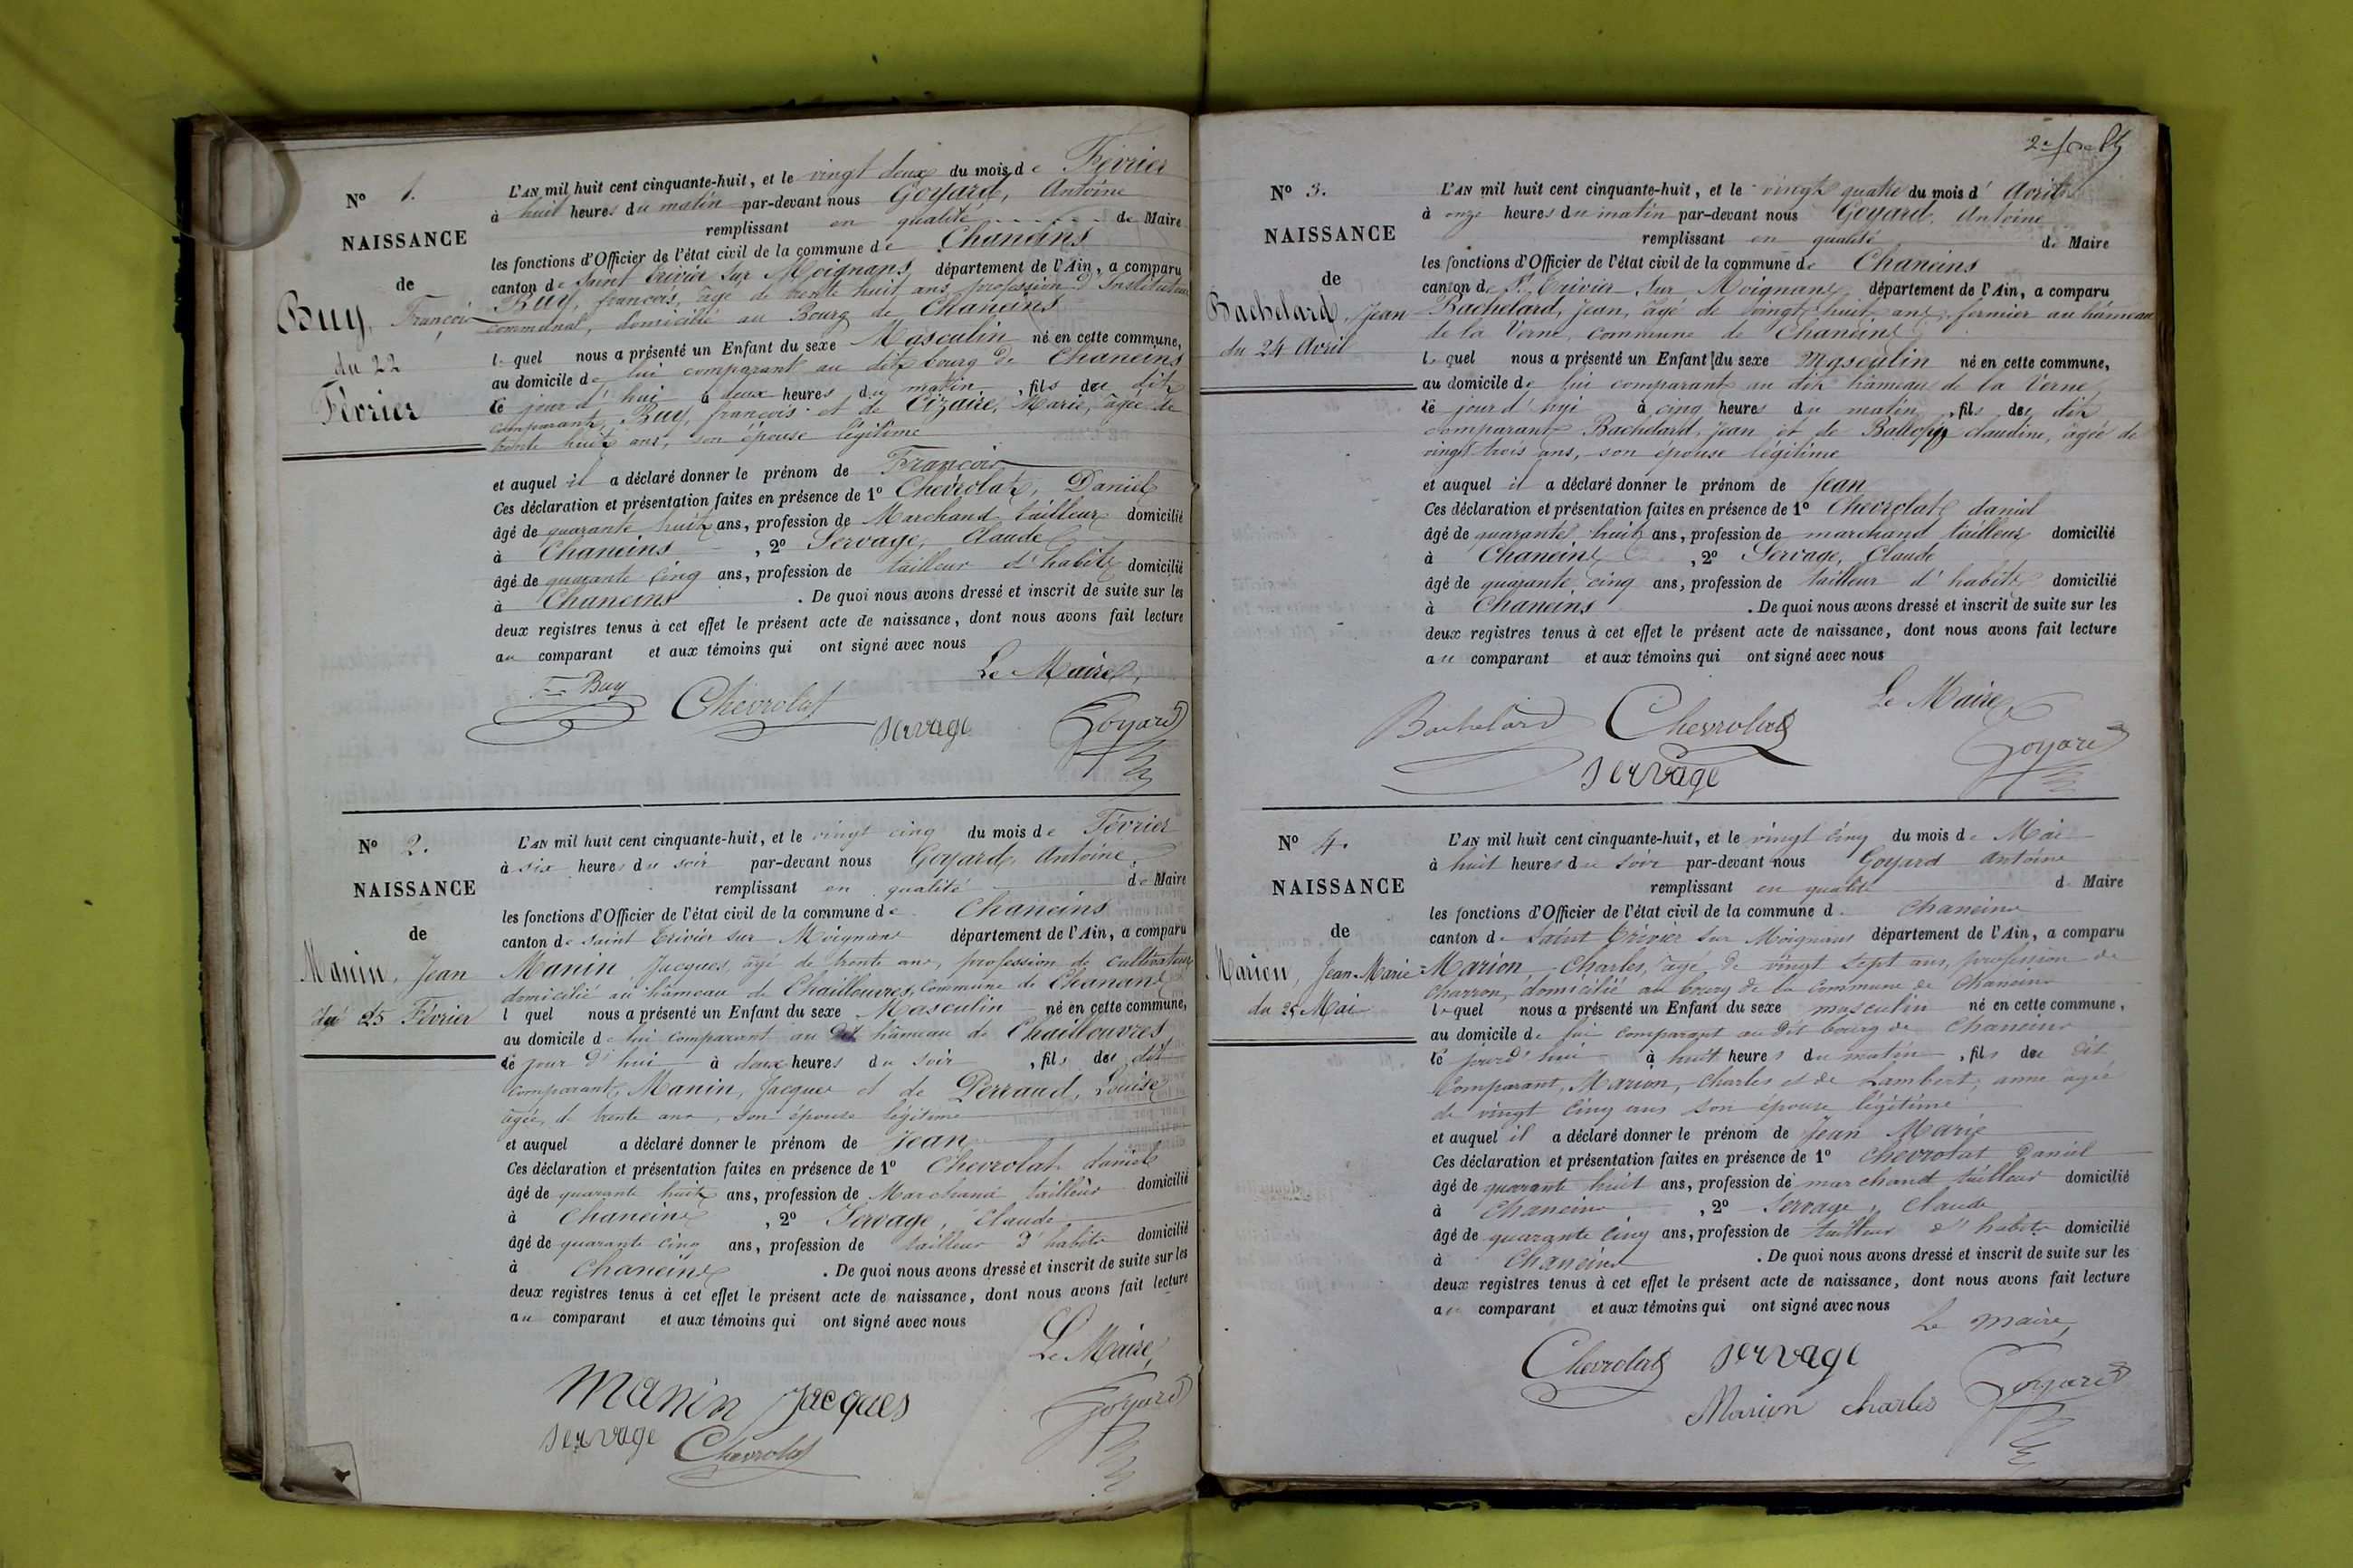 N° 1.
NAISSANCE
de
Buy, François
du 22
Février
L'AN mil huit cent cinquante-huit, et le vingt deux du mois de Février
à huit heures du matin par-devant nous Goyard, Antoine
remplissant en qualité de Maire
les fonctions d'Officier de l'état civil de la commune de Chaneins
canton de Saint Trivier sur Moignans, département de l'Ain, a comparu
Buy, françois, âgé de trente huit ans, profession d'Instituteur
communal, domicilié au Bourg de Chaneins
lequel nous a présenté un Enfant du sexe Masculin né en cette commune,
au domicile de lui comparant au dit bourg de Chaneins
le jour d'hui à deux heures du matin, fils du dit
comparant, Buy, françois et de Cizaire, Marie, âgée de
trente huit ans, son épouse légitime
et auquel il a déclaré donner le prénom de François
Ces déclaration et présentation faites en présence de 1° Chevrolat, Daniel
âgé de quarante huit ans, profession de Marchand tailleur domicilié
à Chaneins , 2° Servage, Claude
âgé de quarante cinq ans, profession de tailleur d'habits domicilié
à Chaneins . De quoi nous avons dressé et inscrit de suite sur les
deux registres tenus à cet effet le présent acte de naissance, dont nous avons fait lecture
au comparant et aux témoins qui ont signé avec nous
Le Maire,
Buy Chevrolat servage Goyard
N° 2.
NAISSANCE
de
Manin, Jean
du 25 Février
L'AN mil huit cent cinquante-huit, et le vingt cinq du mois de Février
à six heures du soir par-devant nous Goyard, Antoine,
remplissant en qualité de Maire
les fonctions d'Officier de l'état civil de la commune de Chaneins
canton de saint Trivier sur Moignans département de l'Ain, a comparu
Manin Jacques, âgé de trente ans, profession de cultivateur
domicilié au hâmeau de Chaillouvres, commune de Chanains
l quel nous a présenté un Enfant du sexe Masculin né en cette commune,
au domicile de lui comparant au dit hâmeau de Chaillouvres
le jour d'hui à deux heures du soir , fils du dit
comparant, Manin, Jacques et de Perraud, Louise
âgée de trente ans, son épouse légitime
et auquel a déclaré donner le prénom de jean
Ces déclaration et présentation faites en présence de 1° Chevrolat daniel
âgé de quarante huit ans, profession de Marchand tailleur domicilié
à Chaneins , 2° Servage, Claude
âgé de quarante cinq ans, profession de tailleur d'habits domicilié
à Chaneins . De quoi nous avons dressé et inscrit de suite sur les
deux registres tenus à cet effet le présent acte de naissance, dont nous avons fait lecture
au comparant et aux témoins qui ont signé avec nous
Le Maire,
Manin Jacques Goyard
servage Chevrolat
N° 3.
NAISSANCE
de
Bachelard, Jean
du 24 Avril
L'AN mil huit cent cinquante-huit, et le vingt quatre du mois d'Avril
à onze heures du matin par-devant nous Goyard, Antoine
remplissant en qualité de Maire
les fonctions d'Officier de l'état civil de la commune de Chaneins
canton de St Trivier sur Moignans, département de l'Ain, a comparu
Bachelard, Jean, âgé de vingt huit ans, fermier au hâmeau
de la Verne, commune de Chaneins
lequel nous a présenté un Enfant du sexe Masculin né en cette commune,
au domicile de lui comparant au dit hâmeau de la Verne
le jour d'hui à cinq heures du matin, fils du dit
comparant Bachelard, Jean et de claudine, âgée de
vingt trois ans, son épouse légitime
et auquel il a déclaré donner le prénom de Jean
Ces déclaration et présentation faites en présence de 1° Chevrolat daniel
âgé de quarante huit ans, profession de marchand tailleur domicilié
à Chaneins , 2° Servage, Claude
âgé de quarante cinq ans, profession de tailleur d'habits domicilié
à Chaneins . De quoi nous avons dressé et inscrit de suite sur les
deux registres tenus à cet effet le présent acte de naissance, dont nous avons fait lecture
au comparant et aux témoins qui ont signé avec nous
Le Maire,
Bachelard Chevrolat Goyard
servage
N° 4.
NAISSANCE
de
Marion, Jean-Marie
du 25 Mai
L'AN mil huit cent cinquante-huit, et le vingt cinq du mois de Mai
à huit heures du soir par-devant nous Goyard Antoine
remplissant en qualité d Maire
les fonctions d'Officier de l'état civil de la commune d Chaneins
canton de Saint Trivier sur Moignans département de l'Ain, a comparu
Marion, Charles, âgé de vingt sept ans, profession de
charron, domicilié au bourg de la commune de Chaneins
lequel nous a présenté un Enfant du sexe masculin né en cette commune,
au domicile de lui comparant au dit bourg de Chaneins
le jourd'hui à huit heures du matin, fils du dit
Comparant, Marion, Charles et de Lambert, anne âgée
de vingt cinq ans son épouse légitime
et auquel il a déclaré donner le prénom de Jean Marie
Ces déclaration et présentation faites en présence de 1° Chevrolat Daniel
âgé de quarante huit ans, profession de marchand tailleur domicilié
à Chaneins , 2° Servage, Claude
âgé de quarante cinq ans, profession de tailleur d'habits domicilié
à Chaneins . De quoi nous avons dressé et inscrit de suite sur les
deux registres tenus à cet effet le présent acte de naissance, dont nous avons fait lecture
au comparant et aux témoins qui ont signé avec nous
Le maire,
Chevrolat servage
Marion charles Goyard